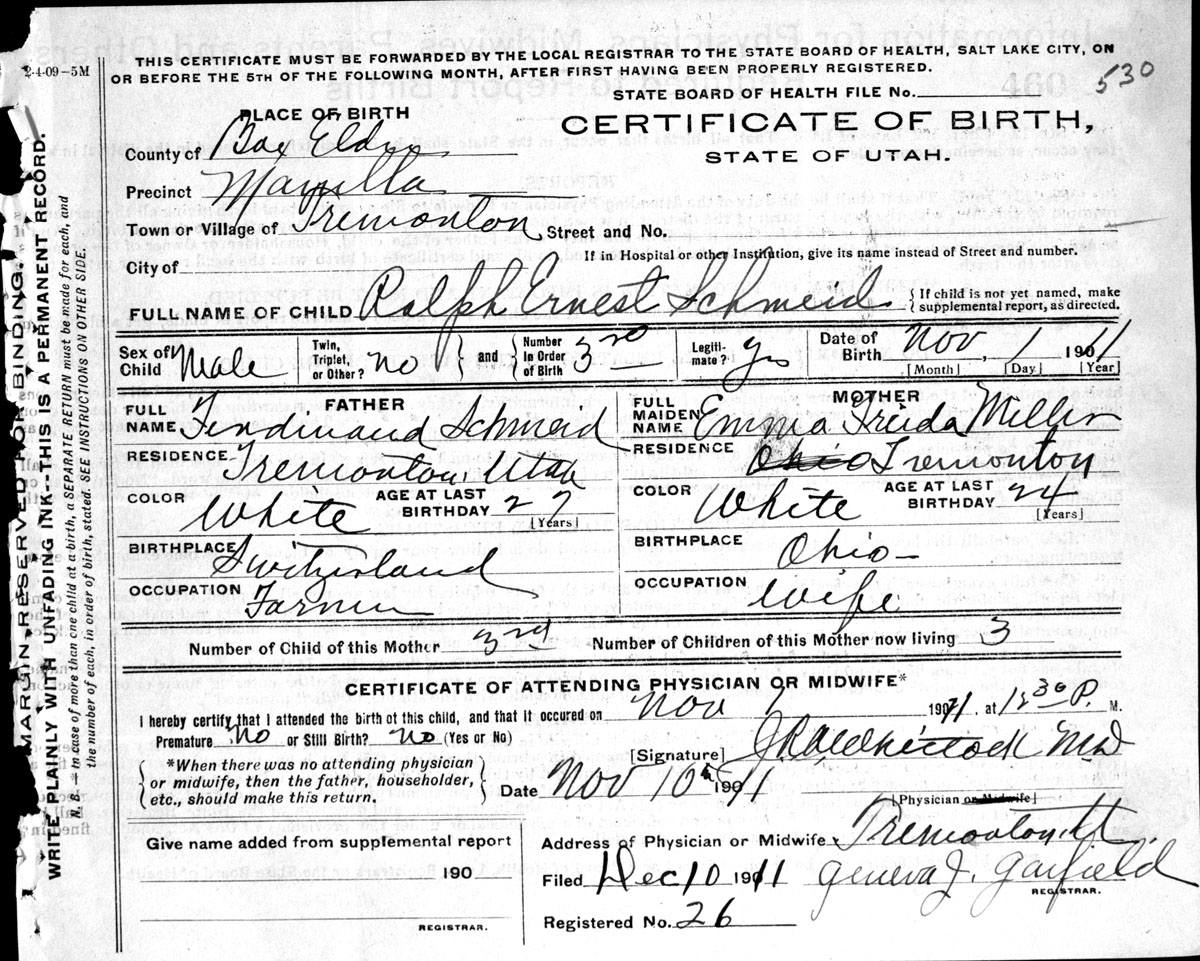 2-4-09-5M
THIS CERTIFICATE MUST BE FORWARDED BY THE LOCAL REGISTRAR TO THE STATE BOARD OF HEALTH, SALT LAKE CITY, ON
OR BEFORE THE 5TH OF THE FOLLOWING MONTH, AFTER FIRST HAVING BEEN PROPERLY REGISTERED.
STATE BOARD OF HEALTH FILE No. 530
PLACE OF BIRTH
CERTIFICATE OF BIRTH,
STATE OF UTAH.
County of Box Elder
Precinct
Town or Village of Tremonton Street and No.
If in Hospital or other Institution, give its name instead of Street and number.
City of
FULL NAME OF CHILD Ralph Ernest Schmeid { If child is not yet named, make
supplemental report, as directed.
Sex of Child Male Twin, Triplet, or Other? no } and { Number In Order of Birth 3rd Legiti-mate? yes Date of Birth Nov, 1 1911
[Month] [Day] [Year]
FATHER
FULL NAME Ferdinand Schmeid
RESIDENCE Tremonton, Utah
COLOR White AGE AT LAST BIRTHDAY 27
[Years]
BIRTHPLACE Switzerland
OCCUPATION Farmer
MOTHER
FULL MAIDEN NAME Emma Freida Miller
RESIDENCE Ohio Tremonton
COLOR White AGE AT LAST BIRTHDAY 24
[Years]
BIRTHPLACE Ohio
OCCUPATION Wife
Number of Child of this Mother 3rd Number of Children of this Mother now living 3
CERTIFICATE OF ATTENDING PHYSICIAN OR MIDWIFE*
I hereby certify that I attended the birth of this child, and that it occured on Nov 1 1911, at 1230 P. M.
Premature No or Still Birth? No (Yes or No)
[Signature] M.D.
{ *When there was no attending physician
or midwife, then the father, householder,
etc., should make this return. }
Date Nov 10 1911
[Physician or Midwife]
Give name added from supplemental report
190
REGISTRAR.
Address of Physician or Midwife Tremonton Ut.
Filed Dec 10 1911 Geneva J. Garfield
REGISTRAR.
Registered No. 26
MARGIN RESERVED FOR BINDING.
WRITE PLAINLY WITH UNFADING INK--THIS IS A PERMANENT RECORD.
N. B.—In case of more than one child at a birth, a SEPARATE RETURN must be made for each, and
the number of each, in order of birth, stated. SEE INSTRUCTIONS ON OTHER SIDE.